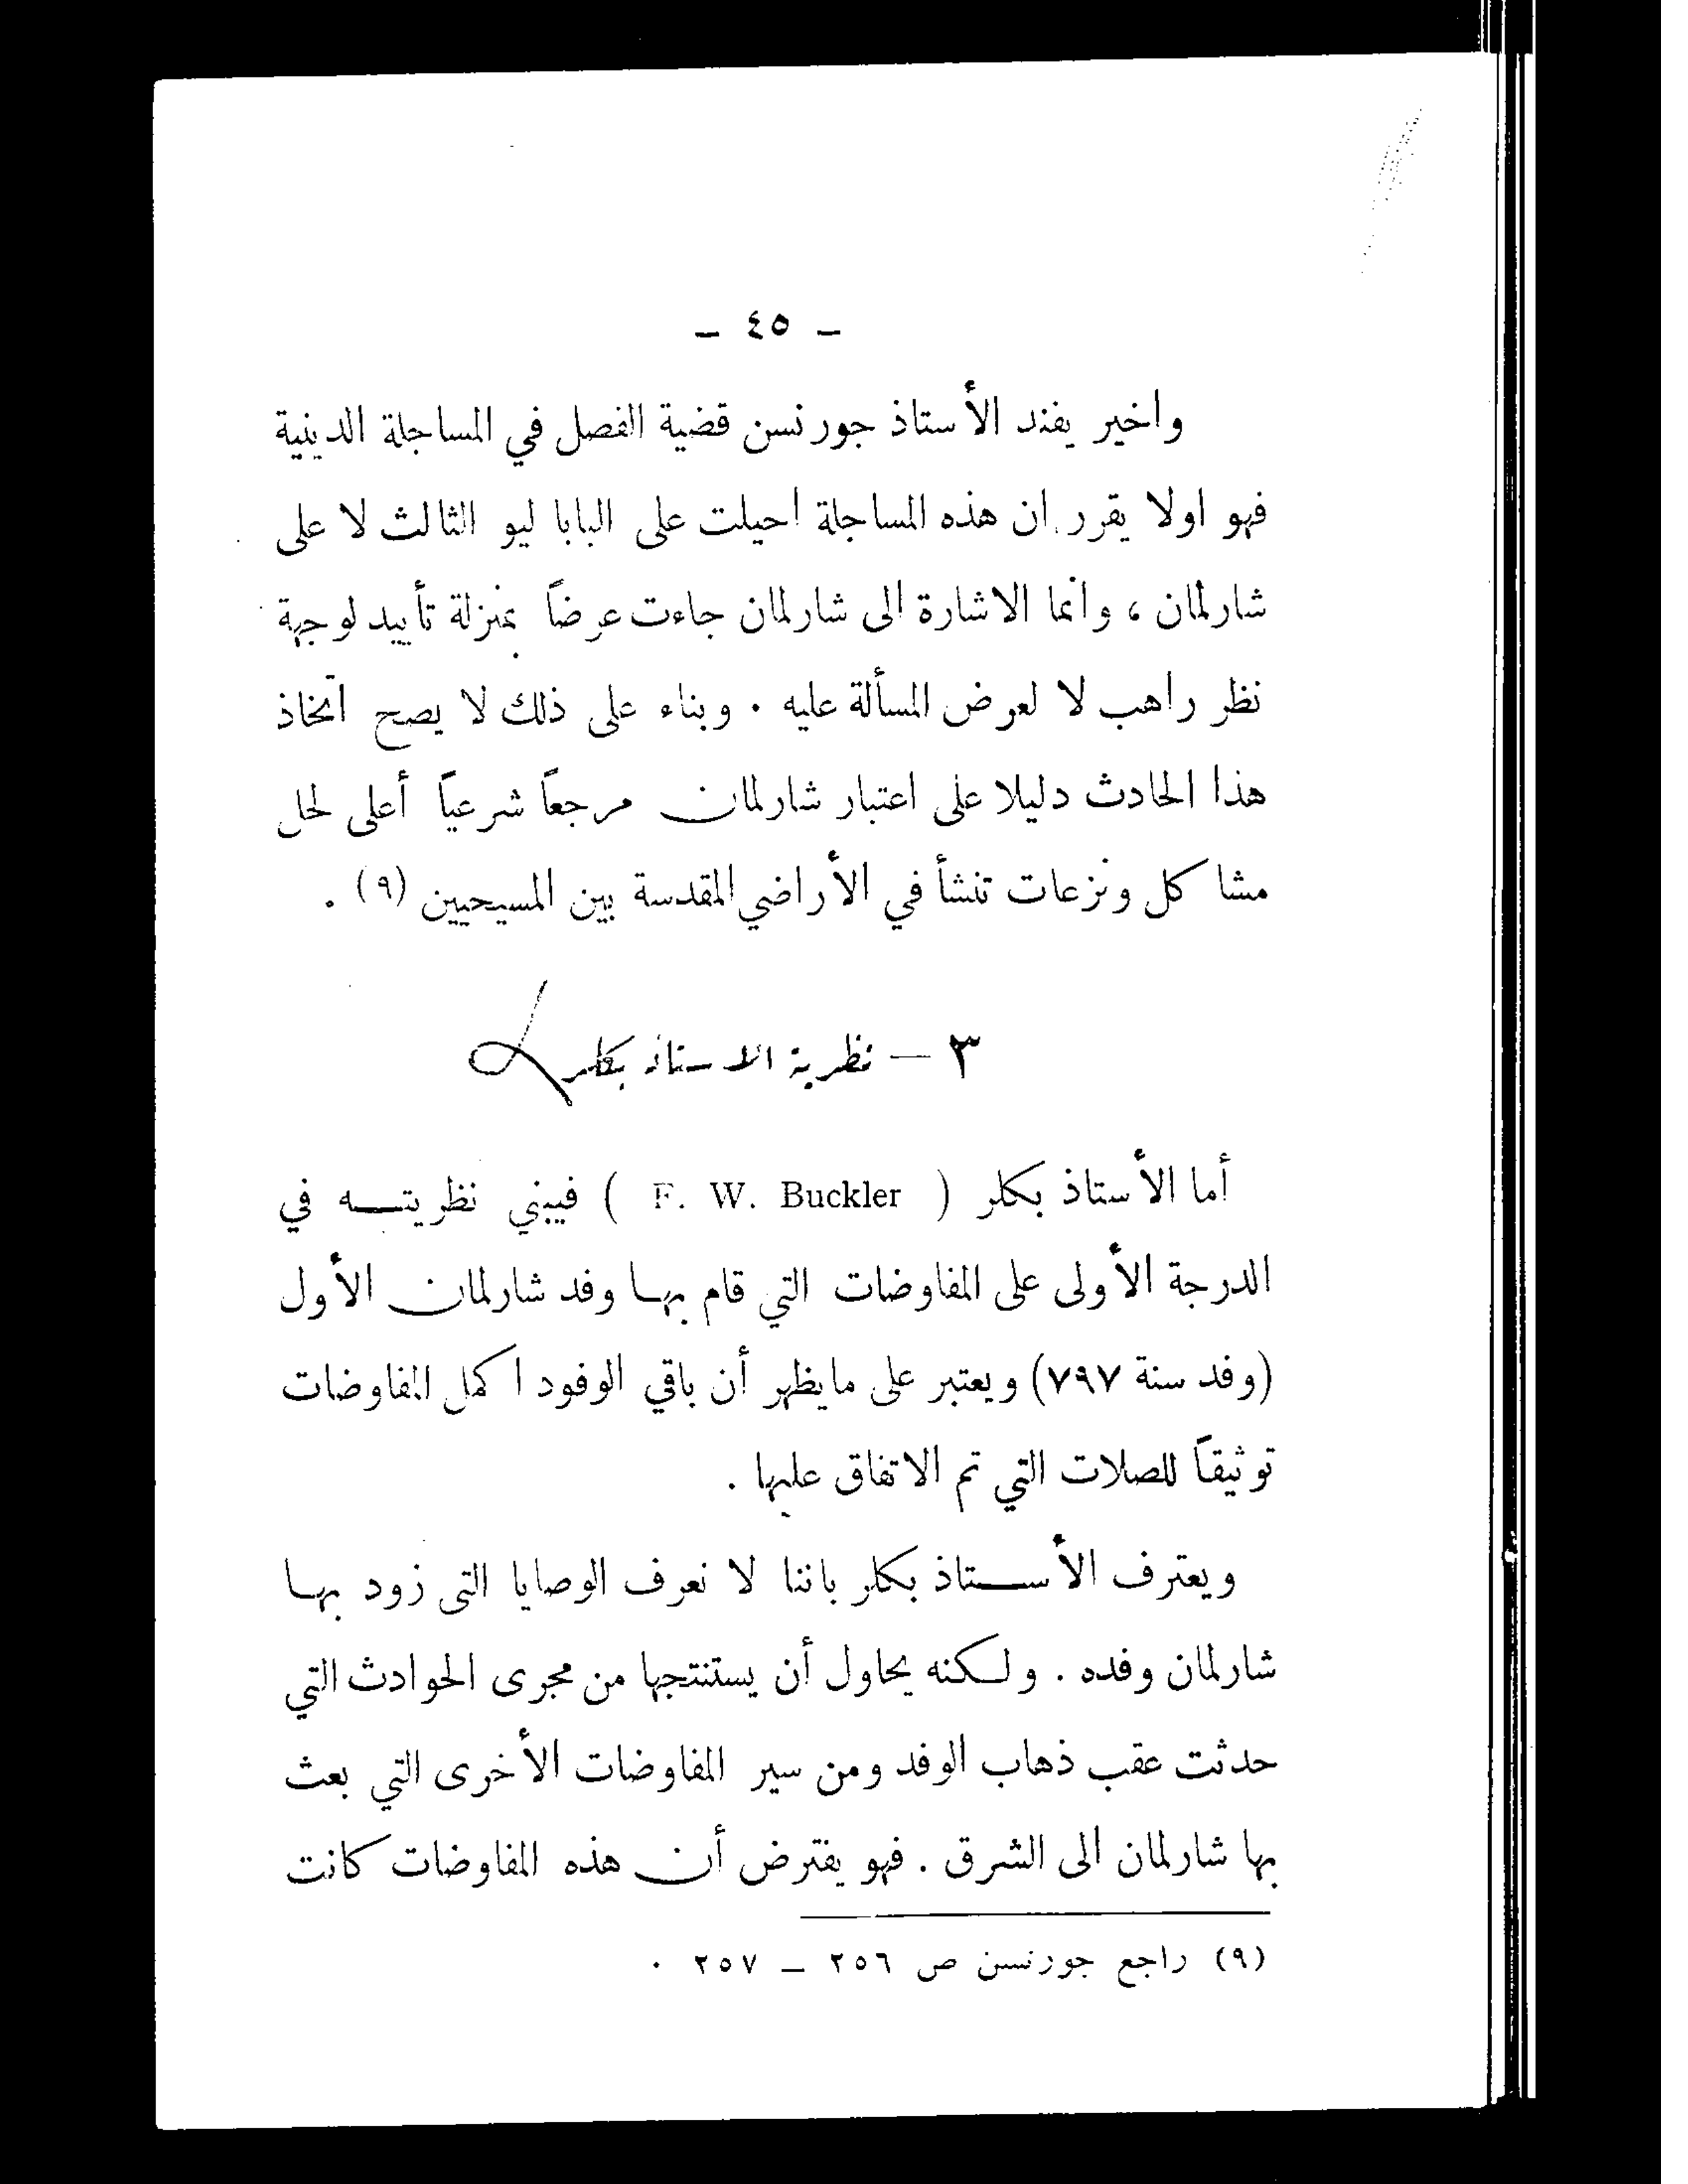 – ٤٥ –
واخير يفند الأستاذ جورنسن قضية الفصل في المساجلة الدينية
فهو اولا يقرر ان هذه المساجلة احيلت على البابا ليو الثالث لا على
شارلمان ، وانما الاشارة الى شارلمان جاءت عرضاً بمنزلة تأييد لوجهة
نظر راهب لا لعرض المسألة عليه . وبناء على ذلك لا يصح اتخاذ
هذا الحادث دليلا على اعتبار شارلمان مرجعاً شرعياً أعلى لحل
مشاكل ونزعات تنشأ في الأراضي المقدسة بين المسيحيين (٩) .
٣ – نظرية الاستاذ بكلر
أما الأستاذ بكلر ( F. W. Buckler ) فيبني نظريته في
الدرجة الأولى على المفاوضات التي قام بها وفد شارلمان الأول
(وفد سنة ٧٩٧) ويعتبر على مايظهر أن باقي الوفود اكمل المفاوضات
توثيقاً للصلات التي تم الاتفاق عليها .
ويعترف الأستاذ بكلر باننا لا نعرف الوصايا التى زود بها
شارلمان وفده . ولكنه يحاول أن يستنتجها من مجرى الحوادث التي
حدثت عقب ذهاب الوفد ومن سير المفاوضات الأخرى التي بعث
بها شارلمان الى الشرق . فهو يفترض أن هذه المفاوضات كانت
(٩) راجع جورنسن ص ٢٥٦ – ٢٥٧ .